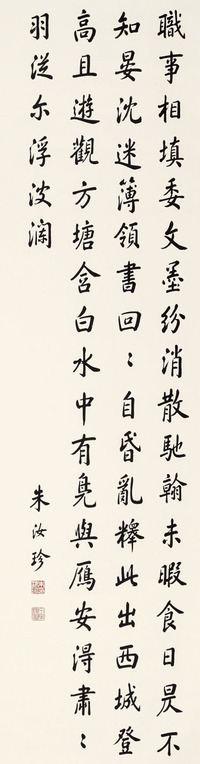 職事相填委文墨紛消散馳翰未暇食日昃不
知晏沈迷簿領書回〻自昏亂釋此出西城登
高且遊觀方塘含白水中有鳧與鴈安得肅〻
羽従尔浮波瀾
朱汝珍